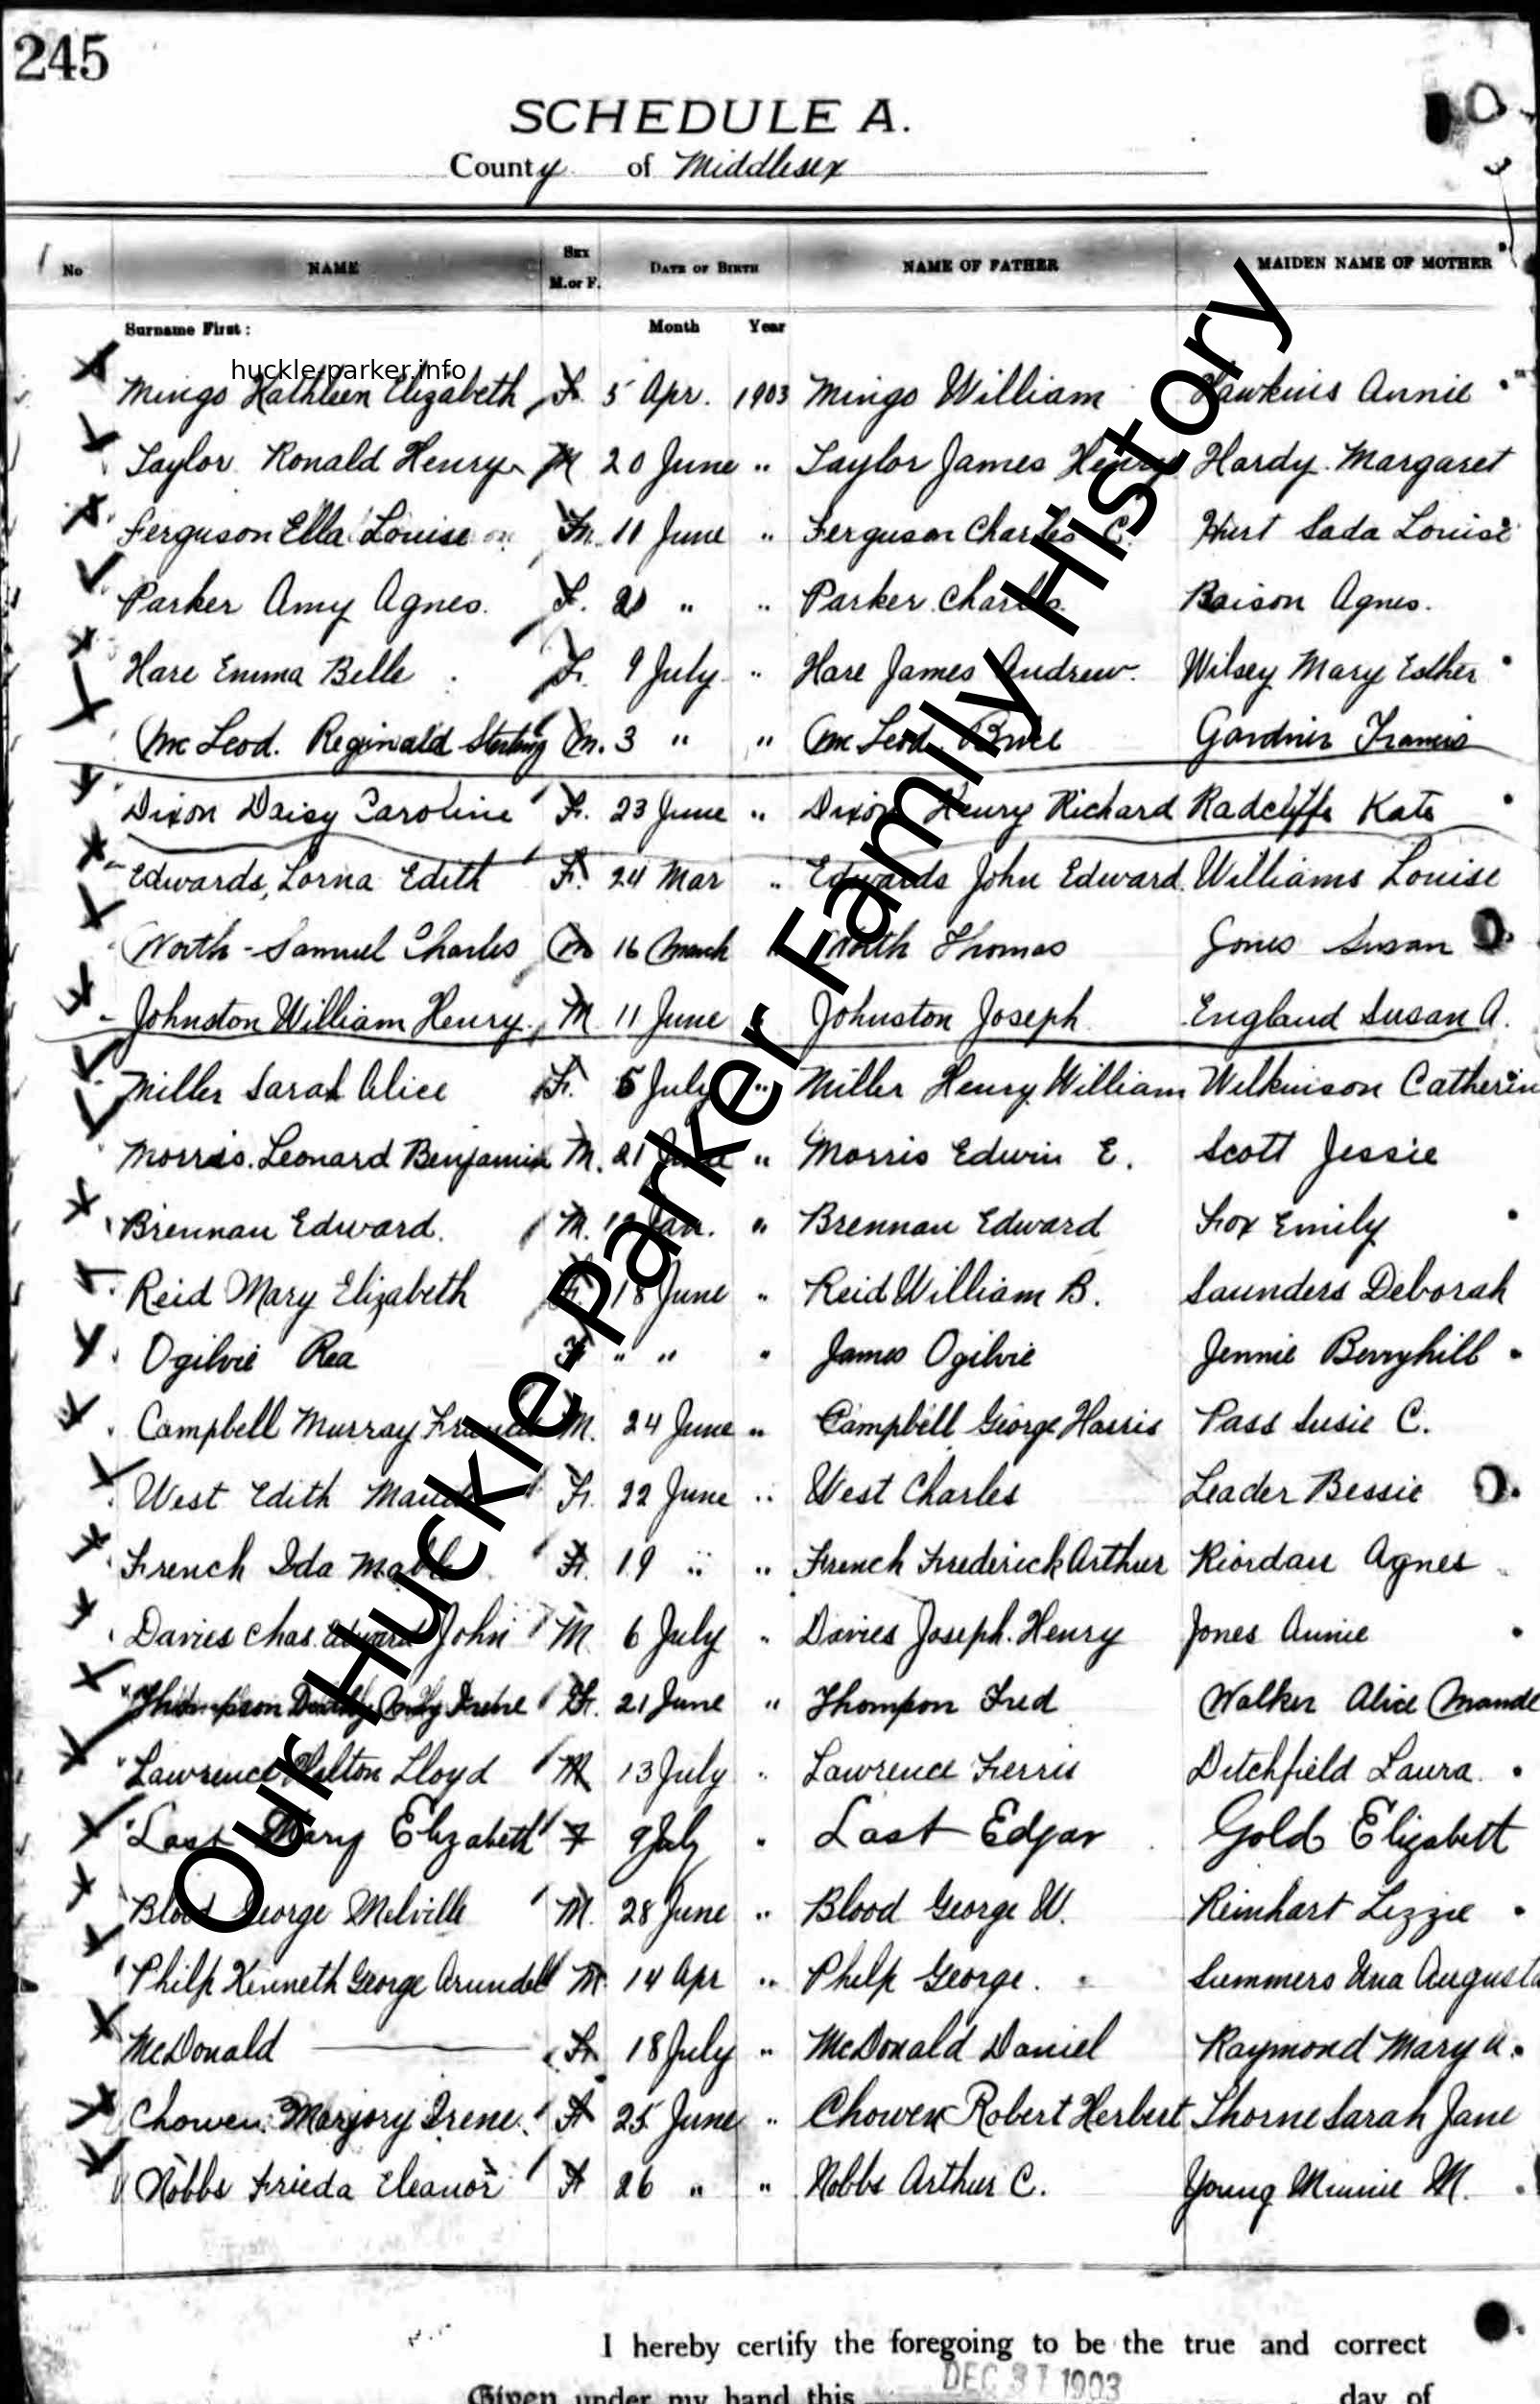 245
SCHEDULE A.
County of Middlesex
No NAME Sex M. or F. DATE OF BIRTH NAME OF FATHER MAIDEN NAME OF MOTHER
Surname First: Month Year
huckle-parker.info
Mingo Kathleen Elizabeth F. 5 Apr. 1903 Mingo William Hawkins Annie
Taylor Ronald Henry M 20 June " Taylor James Henry Hardy Margaret
Ferguson Ella Louise 11 June " Ferguson Charles C. Hurt Sada Louise
Parker Amy Agnes. F. " " Parker Charles Agnes.
Hare Emma Belle F. 9 July " Hare James Andrew. Wilsey Mary Esther
McLeod. Reginald Sterling M. 3 " " McLeod. Bruce Gardner Francis
Dixon Daisy Caroline F. 23 June " Dixon Henry Richard Radcliffe Kate
Edwards, Lorna Edith F. 24 Mar " Edwards John Edward. Williams Louise
North - Samuel Charles M 16 March " North Thomas Jones Susan
Johnston William Henry. M 11 June " Johnston Joseph England Susan A.
Miller Sarah Alice F. 5 July " Miller Henry William Wilkinson Catherin
Morris. Leonard Benjamin M. 21 June " Morris Edwin E. Scott Jessie
Brennan Edward. M. Jan. " Brennan Edward Fox Emily
Reid Mary Elizabeth F. 18 June " Reid William B. Saunders Deborah
Ogilvie Rea F " " " James Ogilvie Jennie Berryhill
Campbell Murray Francis M. 24 June " Campbell George Harris Pass Susie C.
West Edith Maude F. 22 June " West Charles Leader Bessie
French Ida Mable F. 19 " " French Frederick Arthur Riordan Agnes
Davies Chas. Edward John M. 6 July " Davies Joseph. Henry Jones Annie
Thompson Irene F. 21 June " Thompson Fred Walker Alice Maude
Lawrence Lloyd M 13 July " Lawrence Ferris Ditchfield Laura.
Last Mary Elizabeth F 9 July " Last Edgar Gold Elizabett
Blood George Melville M. 28 June " Blood George W. Reinhart Lizzie
Philp Kenneth George Arundell M. 14 Apr " Philp George. Summers Una Augusta
McDonald F. 18 July " McDonald Daniel Raymond Mary A.
Chowen Marjory Irene. F 25 June " Chowen Robert Herbert Thorne Sarah Jane
Nobbs Frieda Eleanor F 26 " " Nobbs Arthur C. Young Minnie M.
Our Huckle-Parker Family History
I hereby certify the foregoing to be the true and correct
Given under my hand this DEC 31 1903 day of